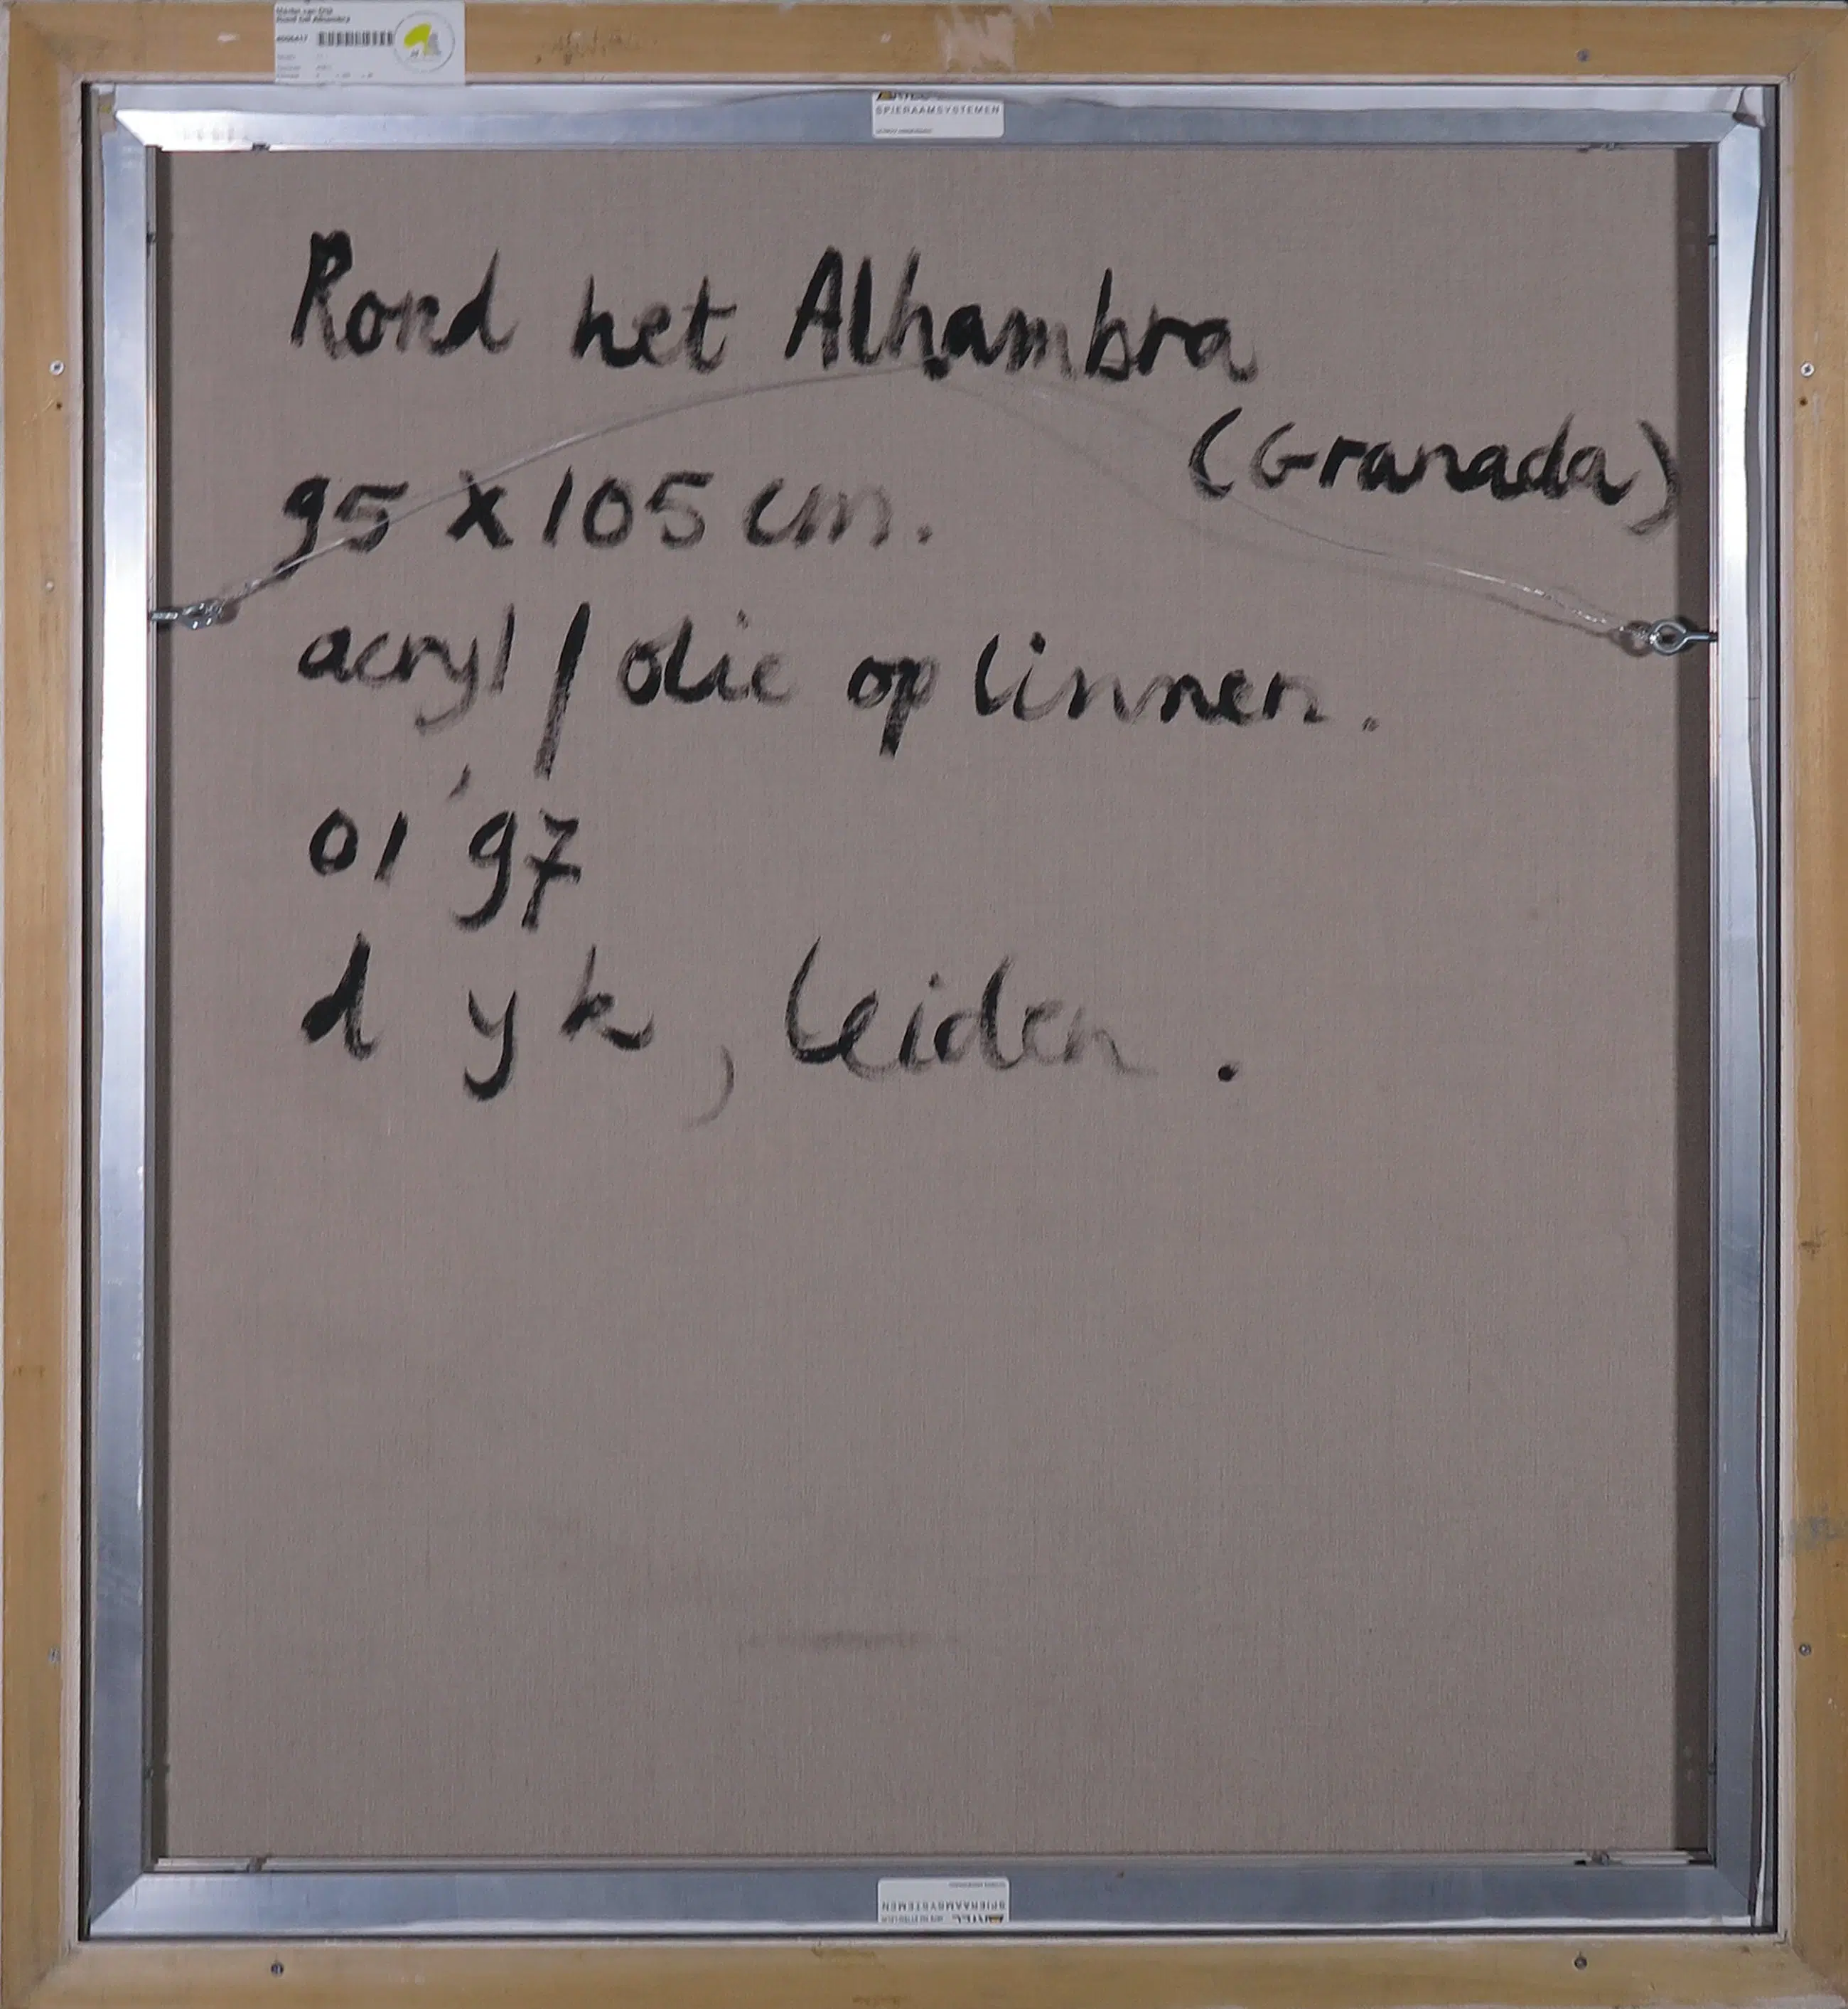 Rond het Alhambra
Rond het Alhambra
(Granada)
95 x 105 cm.
acryl / olie op linnen.
01 '97
dyk, Leiden.
SPIERAAMSYSTEMEN
SPIERAAMSYSTEMEN